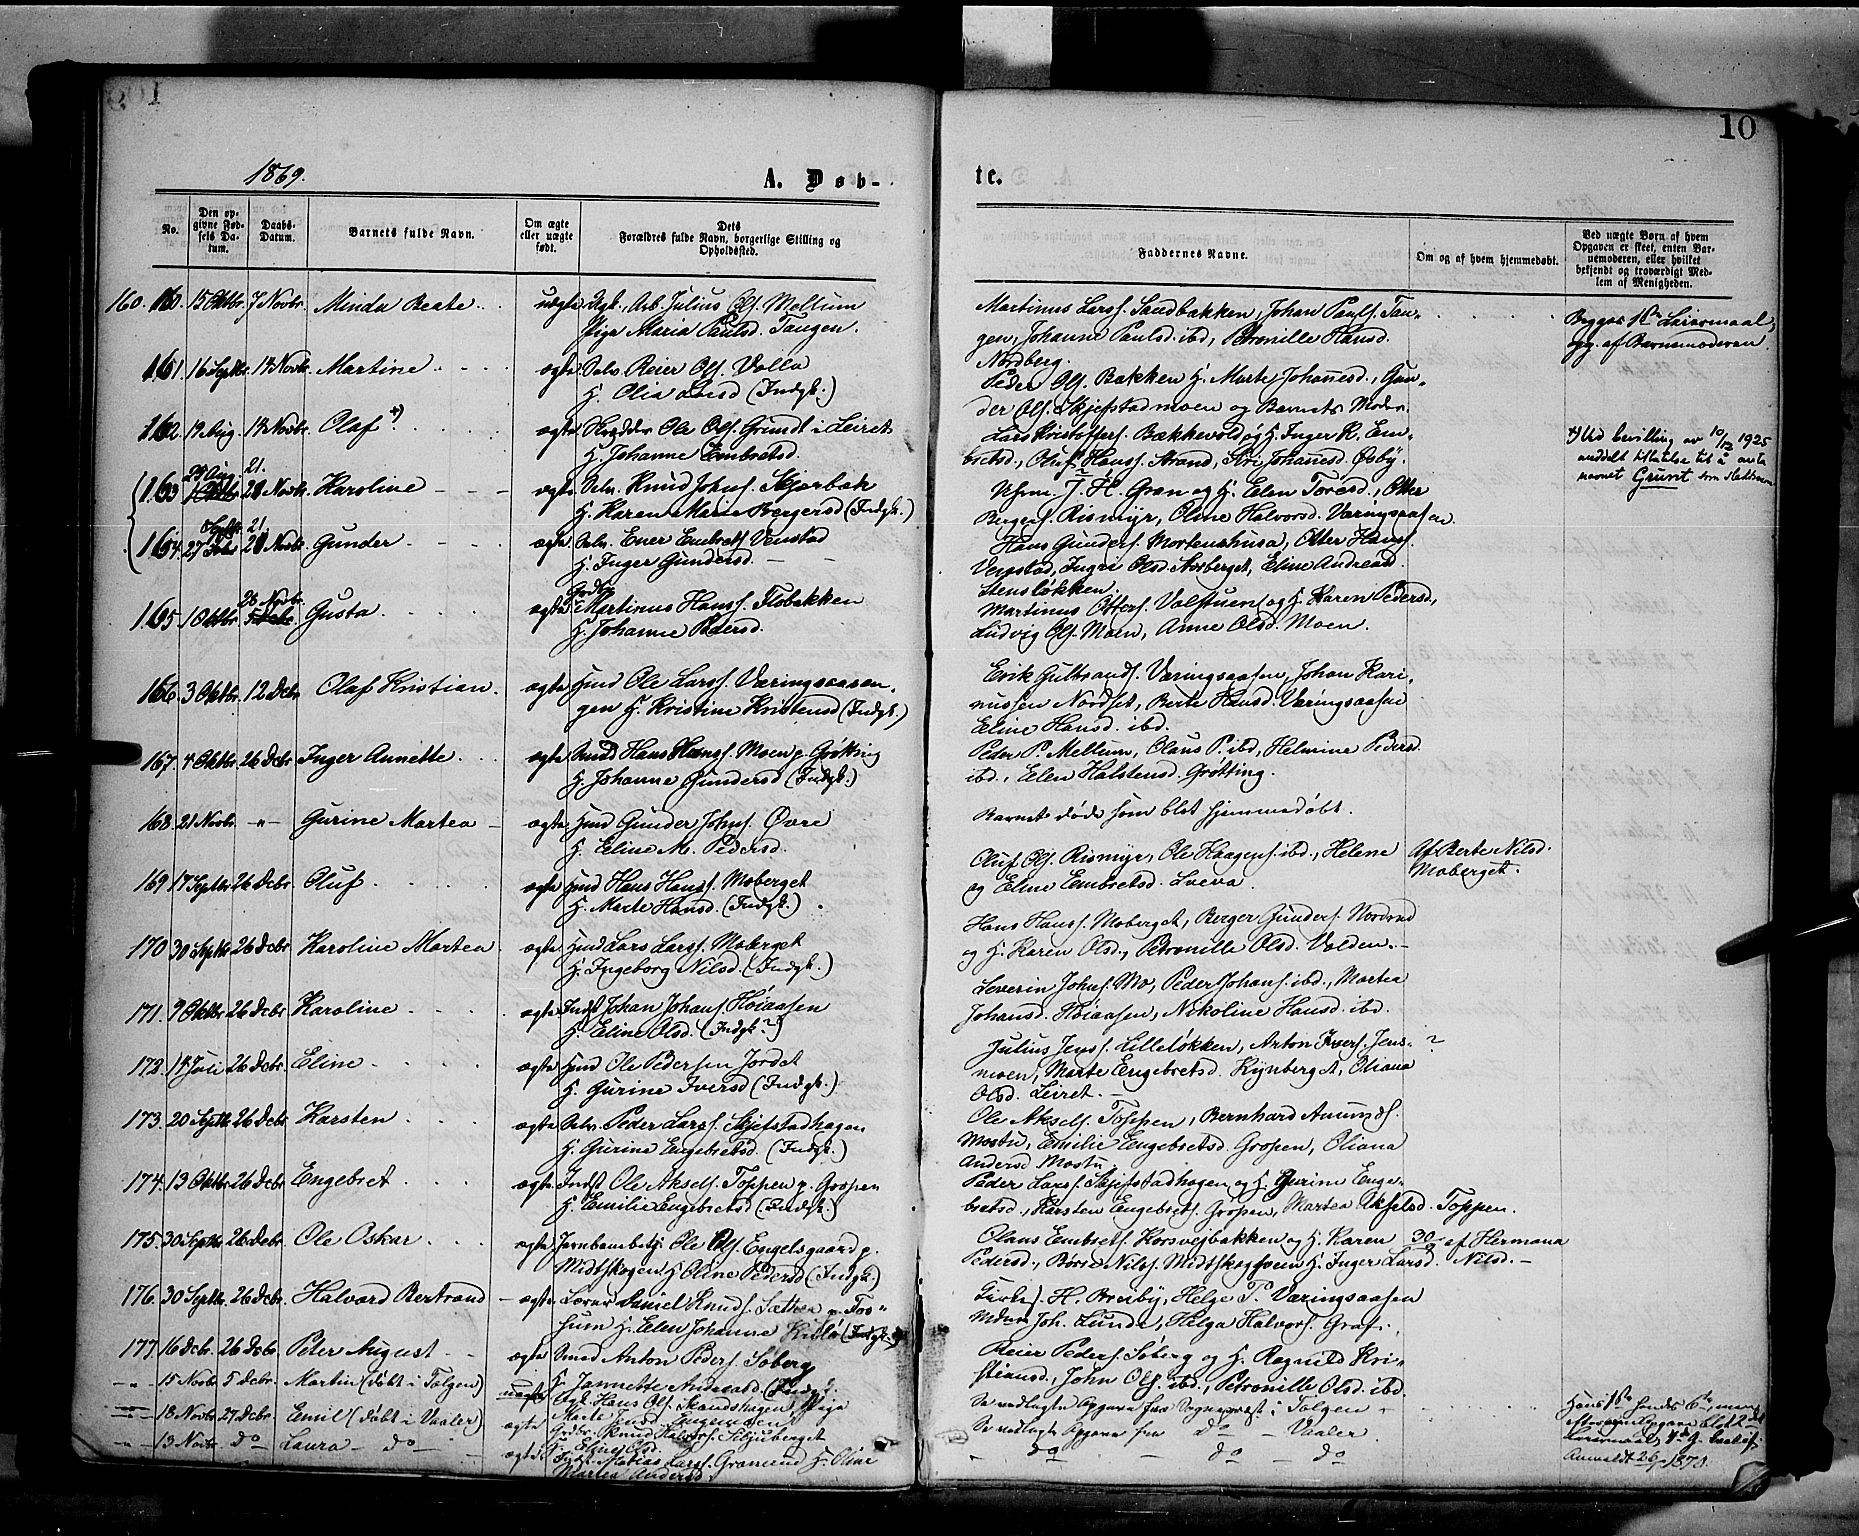 10
1869.
A. Døb-
te.
No.
Den op-
givne Fød-
sels Da-
tum.
Daabs-
Datum.
Barnets fulde Navn.
Om ægte
eller uægte
født.
Dets
Forældres fulde Navn, borgerlige Stilling og
Opholdssted.
Faddernes Navne.
Om og af hvem hjemmedøbt.
Ved uægte Børn af hvem
Opgaven er skeet, enten Bar-
nemoderen, eller hvilket
bekjendt og troværdigt Med-
lem af Menigheden.
160. 160. 15 Oktbr. 7 Novbr. Minda Beate uægte Ugk. Arb. Julius Ols. Mellum
Pige Maria Paulsd. Tangen.
Martinus Larss. Sandbakken, Johan Pauls. Tan-
gen, Johanne Paulsd. ibd, Petronille Hansd.
Nordberg.
Begges 1ste Leiermaal,
opg. af Barnemoderen.
161. 16 Septbr. 14 Novbr. Martine ægte Selv. Reier Ols. Volla
H. Olia Larsd (Indgk.)
Peder Ols. Bakken H. Marte Johannesd., Gun-
der Ols. Skjefstadmoen og Barnets Moder.
162. 19 Aug. 14 Novbr. Olaf +) ægte Skrædder Ole Ols. Grundt i Leiret
H. Johanne Embretsd.
Lars Kristoffers. Bækkevold og H. Inger K. Em-
bretsd., Oluf Hanss. Strand, Siri Johannesd. Øsby.
+) Ved bevilling av 10/12 1925
meddelt tillatelse til å anta
navnet Grunt som slektsnavn
163 21. 28 Novbr. Karoline ægte Selv. Knud Johns. Skjærbæk
H. Karen Marie Bergersd (Indgk.)
J. H. Gran og H. Elen Toresd., Otter
Bergers. Rismyr, Oline Halvorsd. Væringsaasen.
164. Septbr. 27 21. 28 Novbr. Gunder ægte Selv. Ener Embrets. Venstad
H. Inger Gundersd.
Hans Gunders. Mortenshusa, Otter Hanss.
Venstad, Ingri Olsd. Norberget, Eline Andreasd.
Stensløkken.
165. 1 Oktbr. 28 Novbr. 5 Debr. Gusta ægte Martinus Hanss. Flobakken
H. Johanne Pedersd.
Martinus Otters. Valstuen og H. Karen Pedersd.,
Ludvig Ols. Moen, Anne Olsd. Moen.
166. 3 Oktbr. 12 Debr. Olaf Kristian. ægte Husmd Ole Larss. Væringsaasen-
gen H. Kristine Kristensd (Indgk.)
Erik Gulbrands. Væringsaasen, Johan Kari-
nussen Nordset, Berte Hansd. Væringsaasen
Eline Hansd. ibd.
167. 4 Oktbr. 26 Debr. Inger Annette. ægte Smed Hans Hans. Moen p. Grøtting
H. Johanne Gundersd (Indgk.)
Peder P. Mellum, Olaus P. ibd, Helmine Pedersd
ibd., Elen Halstensd. Grøtting.
168. 21 Novbr. -"- Gurine Martea ægte Husmd Gunder Johns. Øvre
H. Eline M. Pedersd.
Barnet døde som blot hjemmedøbt.
169 17 Septbr. 26 Debr. Oluf ægte Husmd Hans Hanss. Moberget
H. Marte Hansd. (Indgk.)
Oluf Ols. Rismyr, Ole Haagens. ibd., Helene
og Eline Embretsd. Løeva.
Af Berte Nilsd.
Moberget.
170 30 Septbr. 26 Debr. Karoline Martea ægte Husmd Lars Larss. Moberget
H. Ingeborg Nilsd. (Indgk.)
Hans Hanss. Moberget, Berger Gunders. Nordrud
og H. Karen Olsd., Petronille Olsd. Volden.-
171. 9 Oktbr. 26 Debr. Karoline ægte Indst Johan Johans. Høiaasen
H. Eline Olsd. (Indgk?)
Severin Johns. Mo, Peder Johans. ibd., Martea
Johansd. Høiaasen, Nikoline Hansd. ibd.
172. 14 Juli 26 Debr. Eline ægte Husmd Ole Pedersen Jordet
H. Gurine Iversd (Indgk.)
Julius Jenss. Lilleløkken, Anton Ivers. Jens-
moen, Marte Engebretsd. Kynberget, Oliana
Olsd. Leiret. -
?
173. 20 Septbr. 26 Debr. Karsten ægte Selv. Peder Larss. Skjefstadhagen
H. Gurine Engebretsd. (Indgk.)
Ole Aksels. Toppen, Bernhard Amunds.
Mostu, Emilie Engebretsd. Gropen, Oliana
Andersd Mostu.
174. 13 Oktbr. 26 Debr. Engebret ægte Indst Ole Aksels. Toppen p. Gropen
H. Emilie Engebretsd (Indgk.)
Peder Larss. Skjefstadhagen og H. Gurine Enge-
bretsd., Karsten Engebrets. Gropen, Martea Akselsd. Toppen.
175. 30 Septbr. 26 Debr. Ole Oskar ægte Jernbanebetj. Ole Ols. Engelsgaard p.
Midtskogen H. Oline Pedersd (Indgk.)
Olaus Embrets. Korsvejbakken og H. Karen
Pedersd., Børre Nilss. Midtskogsveen H. Inger Larsd.
30/9 af Hermana
Nilsd. -
176. 30 Septbr. 26 Debr. Halvard Bertrand - ægte Lærer Daniel Knuds. Sæther p. Fos-
sum H. Elen Johanne (Indgk.)
Kirkes. H. Breiby, Helge P. Væringsaasen
Joh. Lunde, Helga Halvors. Graf.
177. 16 Debr. 26 Debr. Peter August ægte Smed Anton Peders. Søberg
H. Jannette Andreasd. (Indgk.)
Reier Peders. Søberg og H. Ragnild Kri-
stiansd., John Ols. ibd., Petronille Olsd. ibd.
-"- 15 Novbr. 5 Debr. Martin (døbt i Tolgen) uægte Ugk. Hans Ols. Strandshagen, Pige
Marte Engemoen
Se vedlagte Opgave fra Sognepræst i Tolgen -
-"- 18 Novbr. 27 Debr. Emil (døbt i Vaaler) ægte Grdbr. Knud Halvors. Skjuberget
H. Eline Olsd.
Se vedlagte Opgave fra do - Vaaler.
-"- 13 Novbr do Laura - do - ægte Indst. Matias Larss. Gramund H. Oline
Martea Andersd.
- do - do - do
Anmeldt 1873.